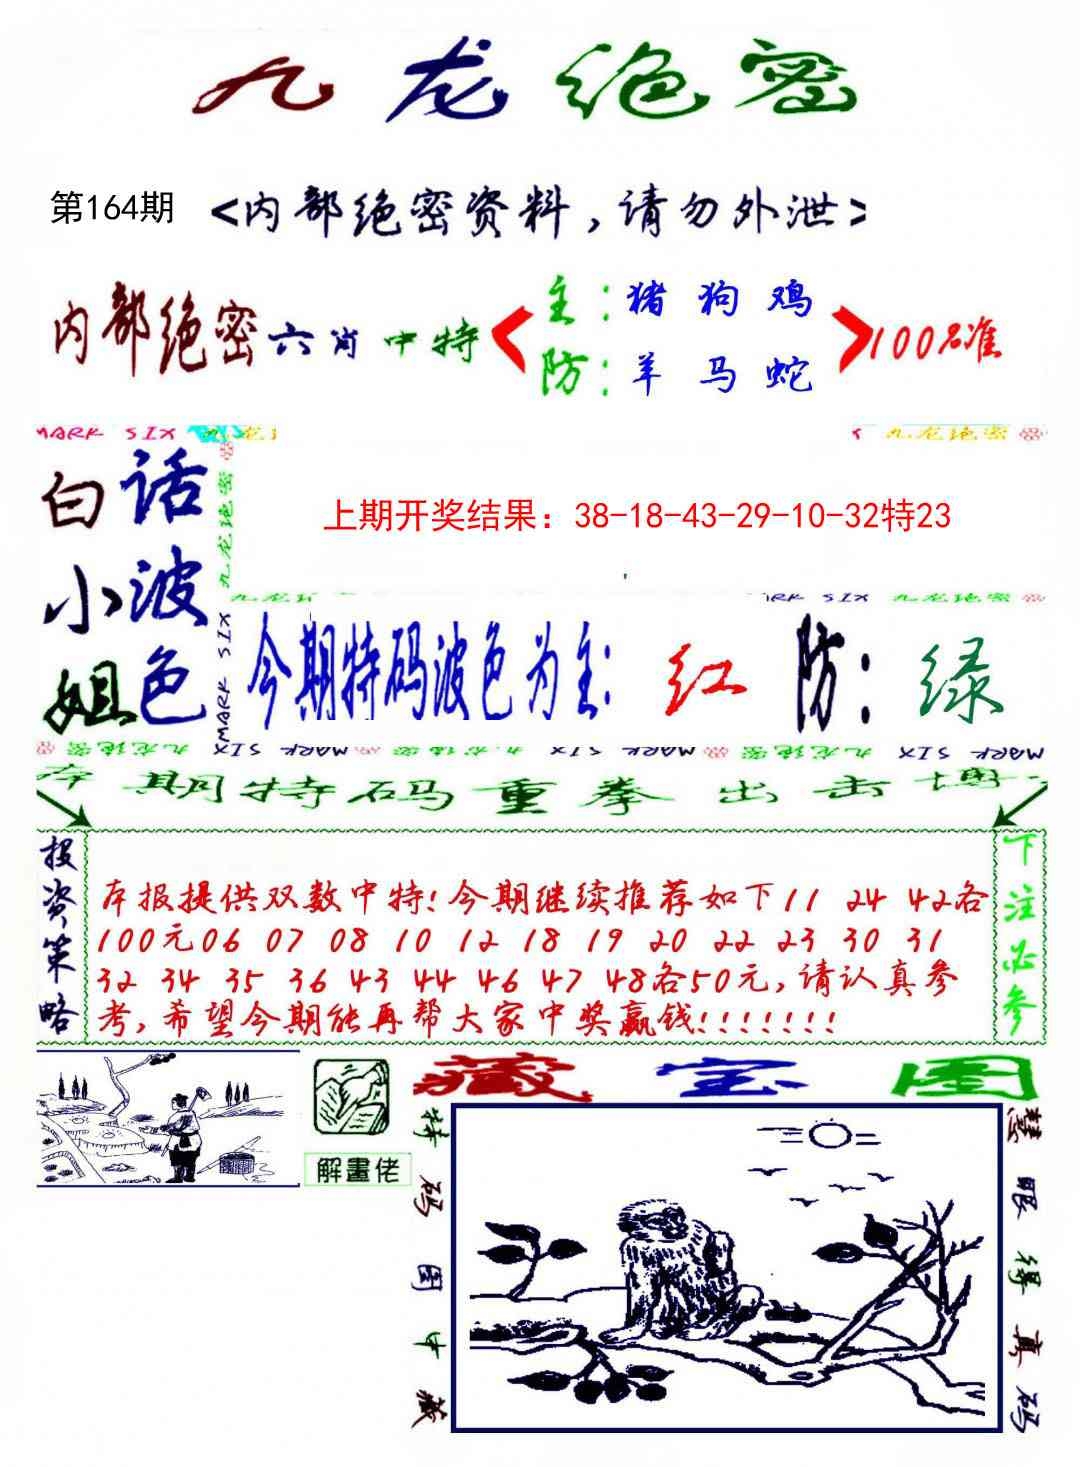 九龙绝密
第164期 <内部绝密资料，请勿外泄>
内部绝密六肖中特
主：猪 狗 鸡
防：羊 马 蛇
100%准
MARK SIX 九龙绝密
白小姐
话波色
上期开奖结果：38-18-43-29-10-32特23
今期特码波色为主：红 防：绿
九龙绝密 MARK SIX 九龙绝密 MARK SIX 九龙绝密 MARK SIX 九龙绝密 MARK SIX
本期特码重拳出击博
投资策略
本报提供双数中特！今期继续推荐如下11 24 42各
100元06 07 08 10 12 18 19 20 22 23 30 31
32 34 35 36 43 44 46 47 48各50元，请认真参
考，希望今期能再帮大家中奖赢钱！！！！！！！
下注必参
解畫佬
藏宝图
特码图中藏
慧眼得真码